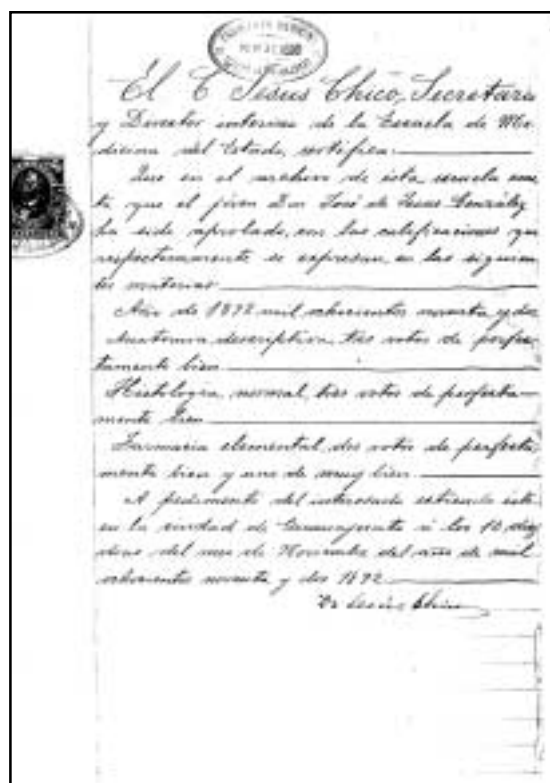 El C Jesus Chico, Secretario
y Director interino de la Escuela de Me-
dicina del Estado, certifica:
Que en el archivo de esta escuela cons
ta que el jóven Don José de Jesus González
ha sido aprobado, con las calificaciones que
respectivamente se expresan, en las siguien
tes materias
Año de 1892 mil ochocientos noventa y dos
Anatomia descriptiva, tres votos de perfec
tamente bien
Histologia normal, tres votos de perfecta-
mente bien
Farmacia elemental, dos votos de perfecta
mente bien y uno de muy bien
A pedimento del interesado extiendo este
en la ciudad de Guanajuato á los 10 diez
dias del mes de Noviembre del año de mil
ochocientos noventa y dos 1892
Dr Jesús Chico